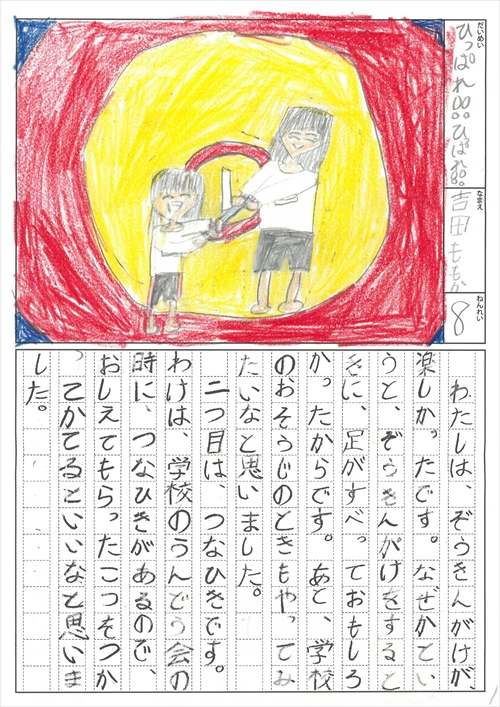 だいめい
ひっぱれ!!!ひっぱれ!!!
なまえ
吉田ももか
ねんれい
8
わたしは、ぞうきんがけが、
楽しかったです。なぜかとい
うと、ぞうきんがけをすると
きに、足がすべっておもしろ
かったからです。あと、学校
のおそうじのときもやってみ
たいなと思いました。
二つ目は、つなひきです。
わけは、学校のうんどう会の
時に、つなひきがあるので、
おしえてもらったこつをつか
ってかてるといいなと思いま
した。